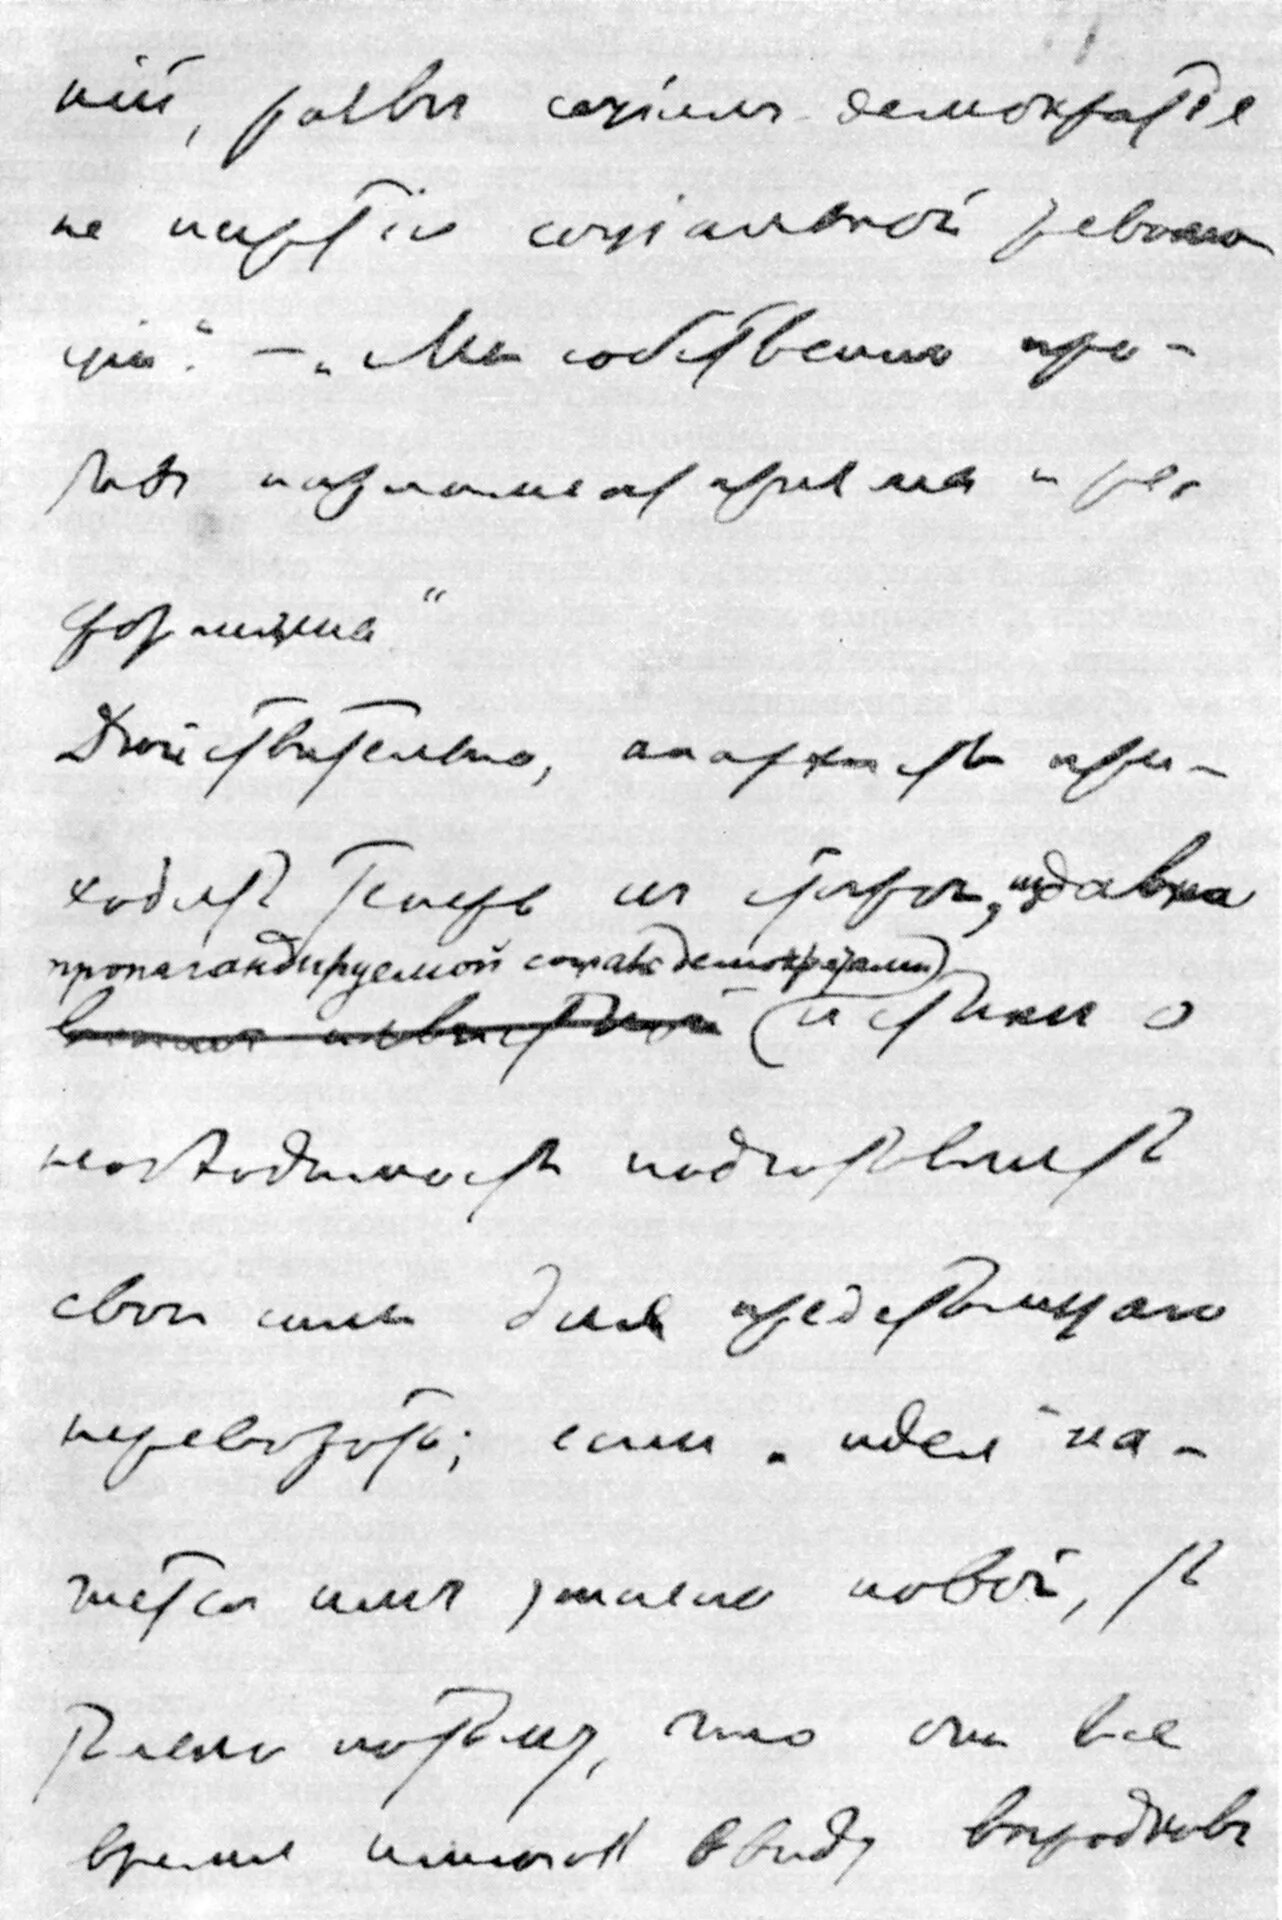 ній, развѣ соціалъ-демократіе
не партія соціальной револю
ціи". — „Мы собственно про-
тивъ парламентаризма и ре
формизма"
Дѣйствительно, анархисты при-
ходятъ теперь къ старой, издавна
пропагандируемой соціалъ демократами)
(истинѣ о
необходимости подготовлять
свои силы для предстоящаго
переворота; если идея ка-
жется имъ новой, то
только потому, что они все
время имѣютъ въ виду выродковъ